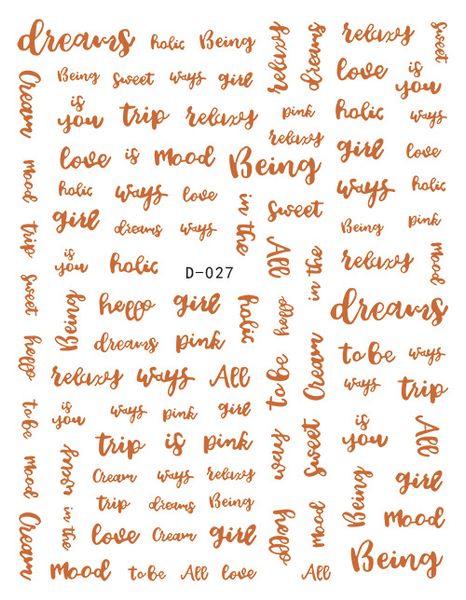 dreams holic Being
relaxy
dreams
relaxy
sweet
Cream
Being sweet ways girl
love is you
is you trip relaxy
pink holic ways
relaxy
love is mood Being
girl love
mood
holic ways love
ways holic
in the
sweet
trip
girl dreams ways
Being pink
is you holic
D-027
All
in the
relaxy
mood
sweet
hello girl
holic
hello
dreams
hello
dreams pink
toBe ways
relaxy ways All
to be
Cream
ways trip
to be
is you ways pink girl
is you
All
trip is pink
ways
sweet
mood
in the
Cream ways relaxy
Being
girl
trip dreams Being
mood
Cream
love Cream girl
hello
mood
Being
mood toBe All love
All